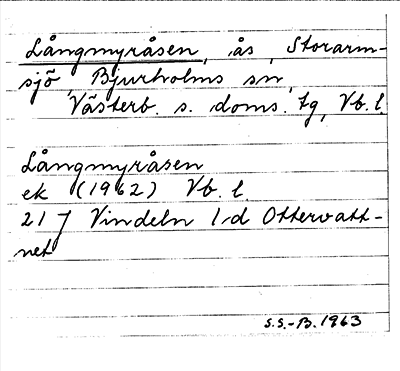 Långmyråsen, ås, Storarm-
sjö, Bjurholms sn,
Västerb. s. doms. tg, Vb. l.
Långmyråsen
ek (1962) Vb. l.
21 J Vindeln 1d Ottervatt-
net
S.S.-B. 1963